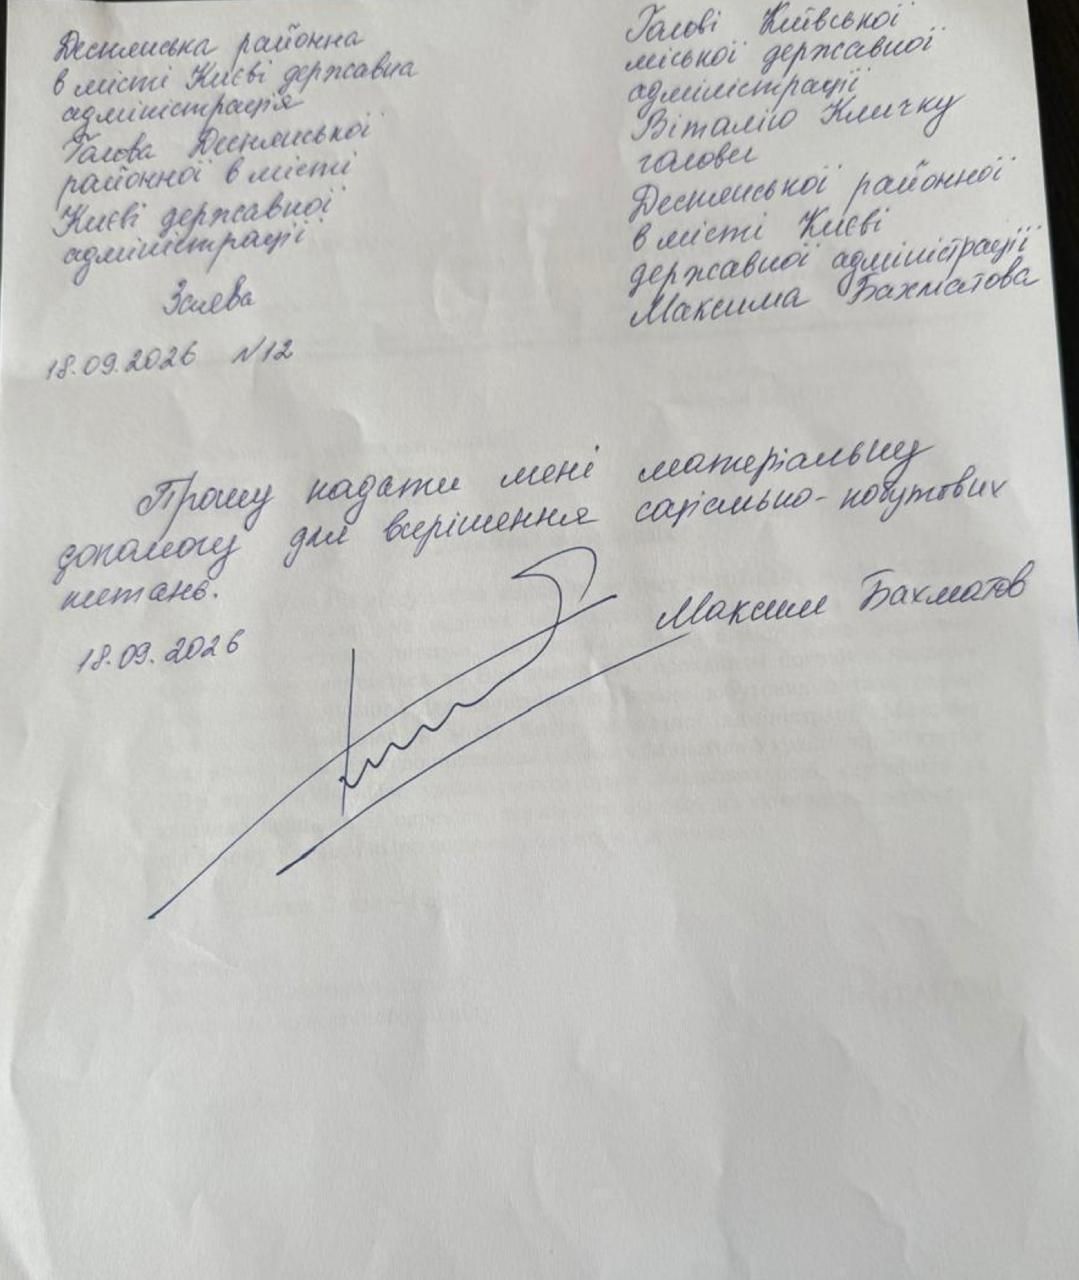 Деснянська районна
в місті Києві державна
адміністрація
Голова Деснянської
районної в місті
Києві державної
адміністрації
Заява
18.09.2026 N12
Голові Київської
міської державної
адміністрації
Віталію Кличку
голови
Деснянської районної
в місті Києві
державної адміністрації
Максима Бахматова
Прошу надати мені матеріальну
допомогу для вирішення соціально-побутових
питань.
18.09.2026
Максим Бахматов